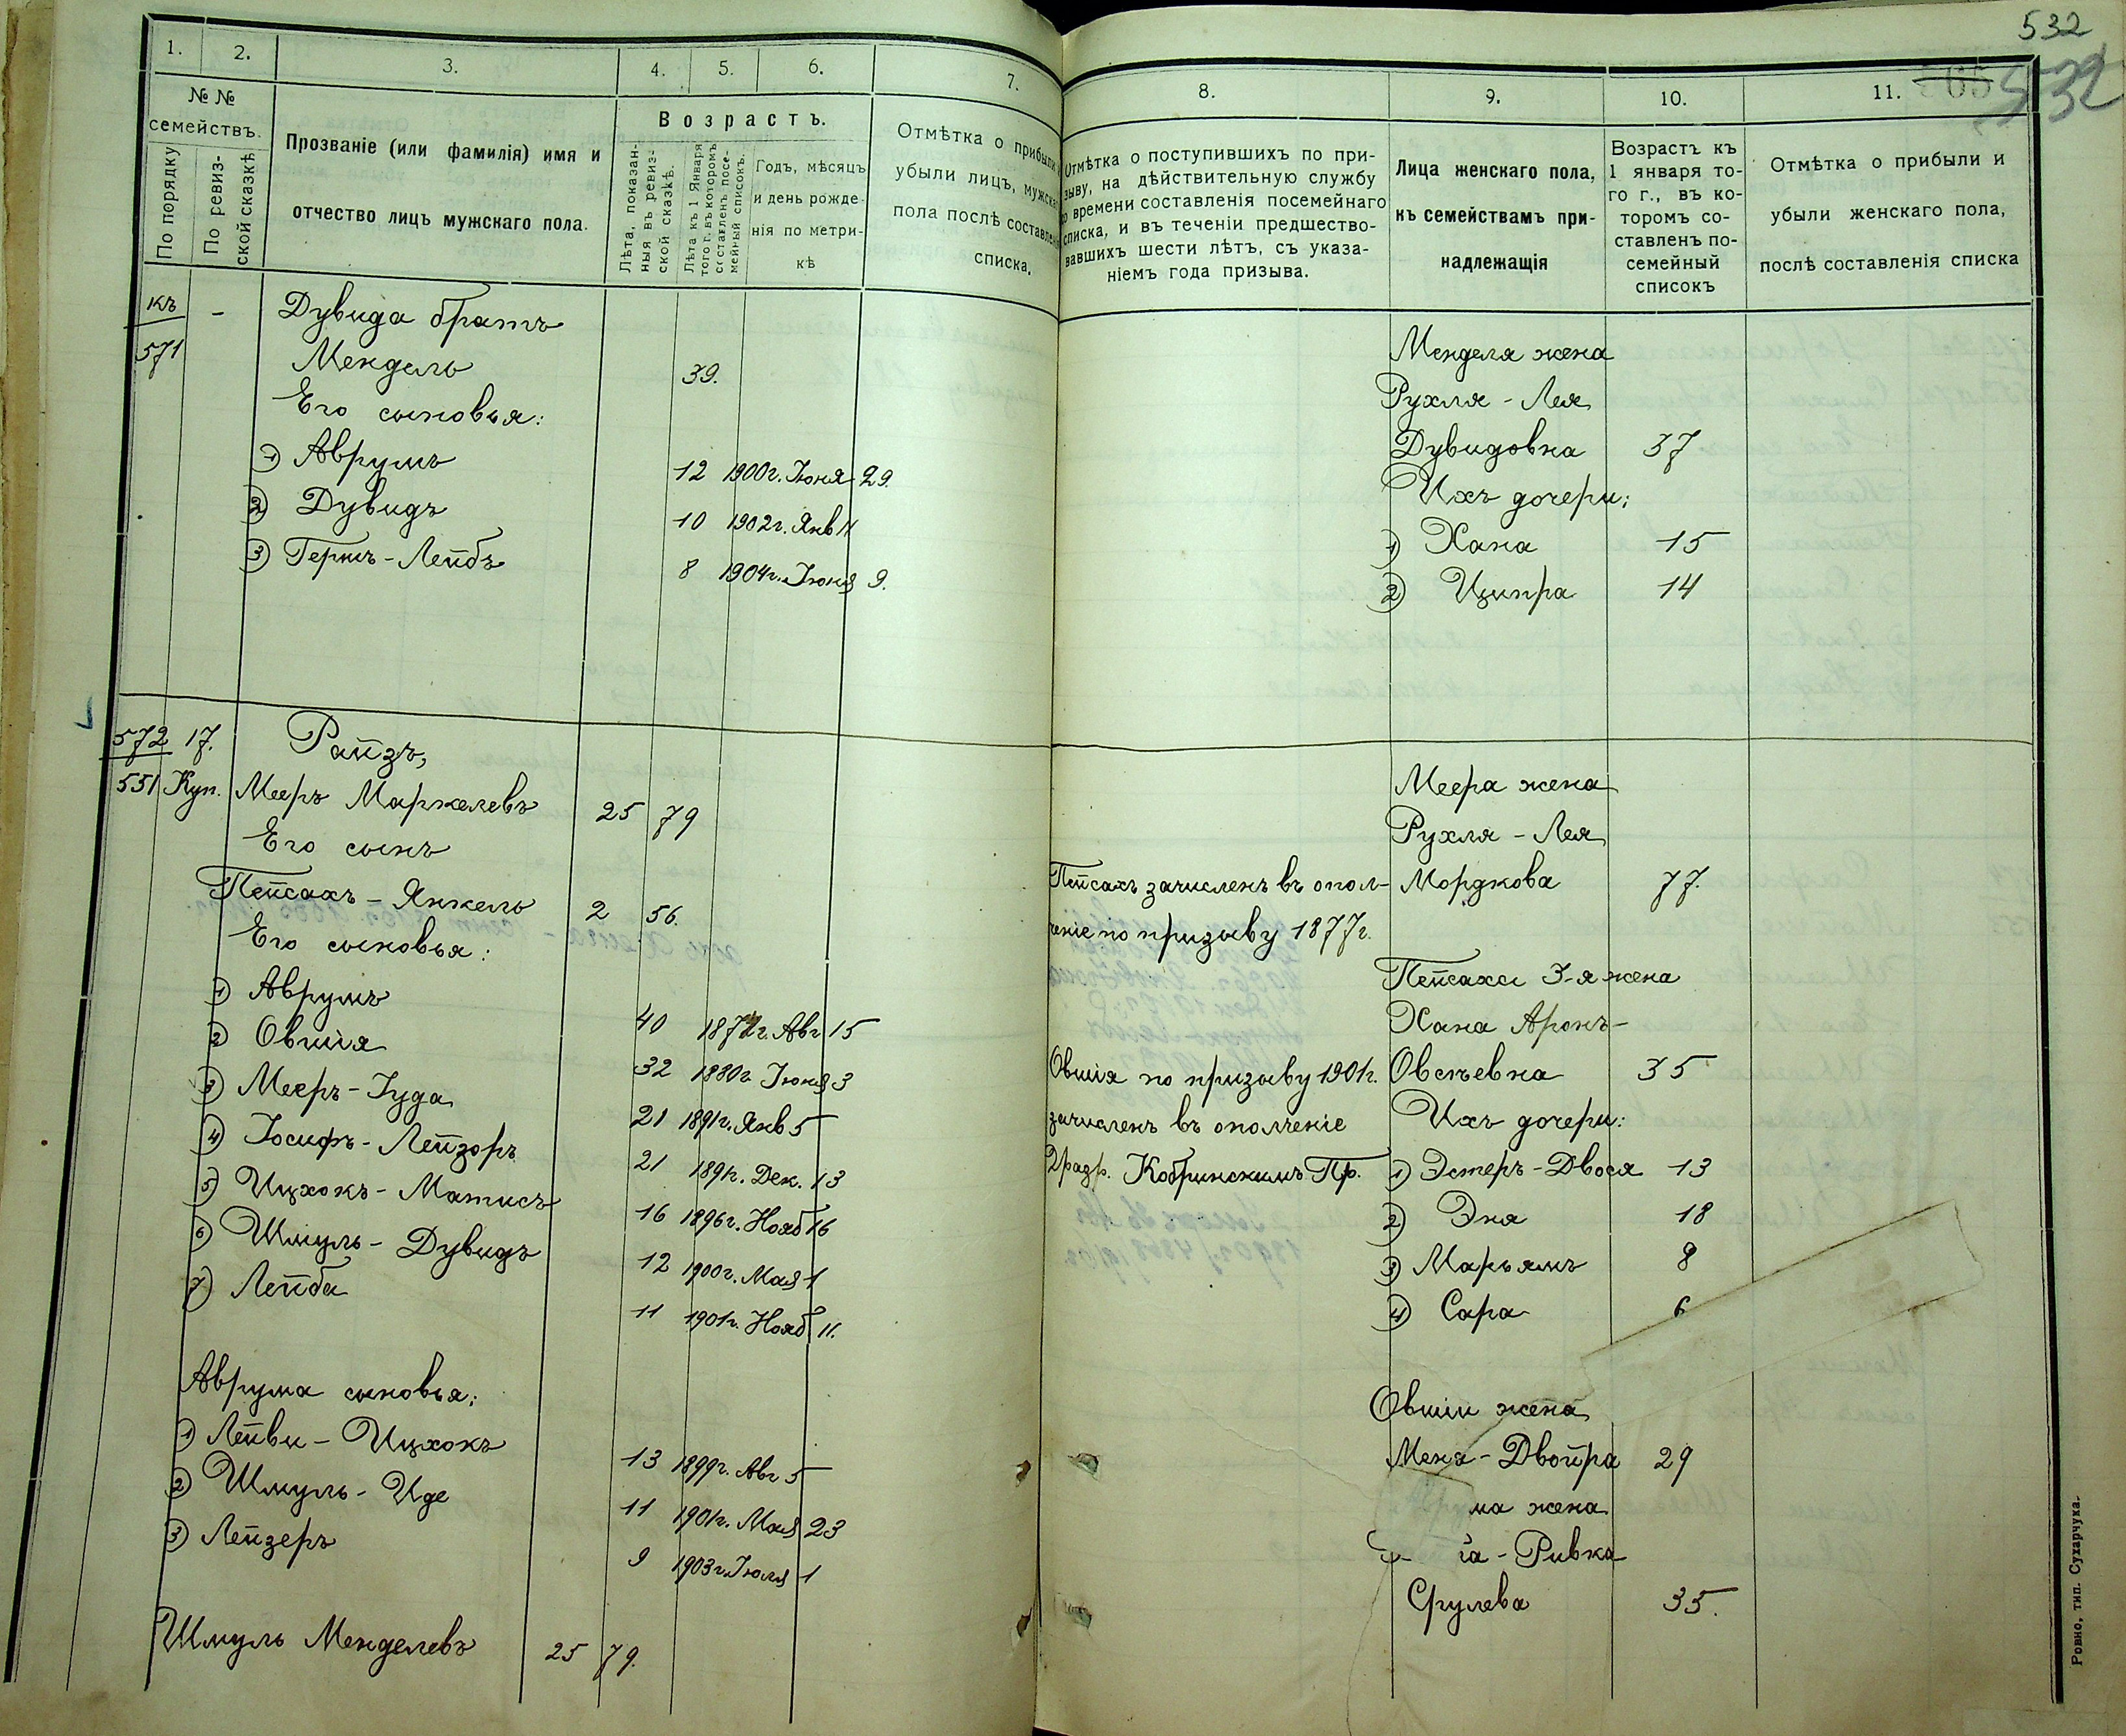 532
532
1.
2.
3.
4.
5.
6.
7.
№ №
семействъ.
По порядку
По ревиз-
ской сказкѣ
Прозваніе (или фамилія) имя и
отчество лицъ мужскаго пола.
Возрастъ.
Лѣта, показан-
ныя въ ревиз-
ской сказкѣ.
Лѣта къ 1 Января
того г. въ которомъ
составленъ посе-
мейный списокъ.
Годъ, мѣсяцъ
и день рожде-
нія по метри-
кѣ
Отмѣтка о прибыли
убыли лицъ, мужска
пола послѣ составлен
списка.
къ
571
-
Дувида братъ
Мендель 39.
Его сыновья:
1) Аврумъ 12 1900г. Іюня 29.
2) Дувидъ 10 1902г. Янв 11
3) Гершъ-Лейбъ 8 1904г. Іюня 9.
572 17.
551 Куп.
Райзъ,
Мееръ Маркелевъ 25 79
Его сынъ
Пейсахъ-Янкель 2 56.
Его сыновья:
1) Аврумъ 40 1872г. Авг 15
2) Овшія 32 1880г. Іюня 3
3) Мееръ-Іуда 21 1891г. Янв 5
4) Іосифъ-Лейзоръ 21 1891г. Дек. 13
5) Ицхокъ-Матисъ 16 1896г. Нояб 16
6) Шмуль-Дувидъ 12 1900г. Мая 1
7) Лейба 11 1901г. Нояб 11.
Аврума сыновья:
1) Лейви-Ицхокъ 13 1899г. Авг 5
2) Шмуль-Иде 11 1901г. Мая 23
3) Лейзеръ 9 1903г. Іюля 1
Шмуль Менделевъ 25 79.
8.
9.
10.
11.
Отмѣтка о поступившихъ по при-
зыву, на дѣйствительную службу
о времени составленія посемейнаго
списка, и въ теченіи предшество-
вавшихъ шести лѣтъ, съ указа-
ніемъ года призыва.
Лица женскаго пола,
къ семействамъ при-
надлежащія
Возрастъ къ
1 января то-
го г., въ ко-
торомъ со-
ставленъ по-
семейный
списокъ
Отмѣтка о прибыли и
убыли женскаго пола,
послѣ составленія списка
Менделя жена
Рухля-Лея
Дувидовна 37
Ихъ дочери:
1) Хана 15
2) Ципра 14
Меера жена
Рухля-Лея
Мордкова 77.
Пейсахъ зачисленъ въ опол-
ченіе по призыву 1877г.
Пейсаха 3-я жена
Хана Аронъ-
Овсѣевна 35
Овшія по призыву 1901г.
зачисленъ въ ополченіе
2 разр. Кобринскимъ Пр.
Ихъ дочери:
1) Эстеръ-Двося 13
2) Эня 18
3) Марьямъ 8
4) Сара 6
Овшіи жена
Меня-Двойра 29
ма жена
-Ривка
Срулева 35.
Ровно, тип. Сухарчука.